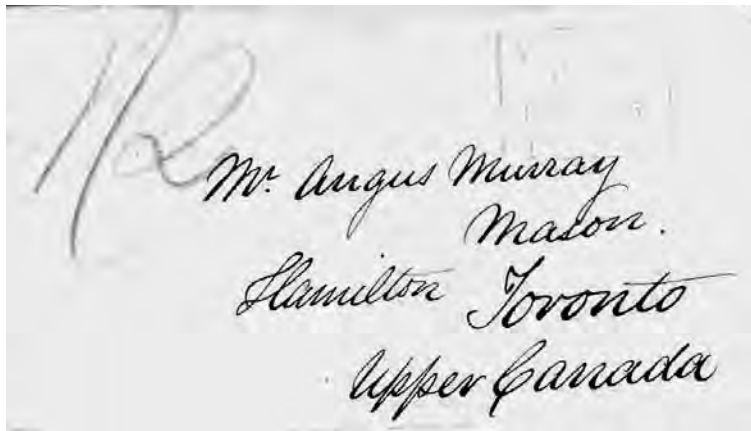 1/2
Mr. Angus Murray
Mason.
Hamilton Toronto
Upper Canada